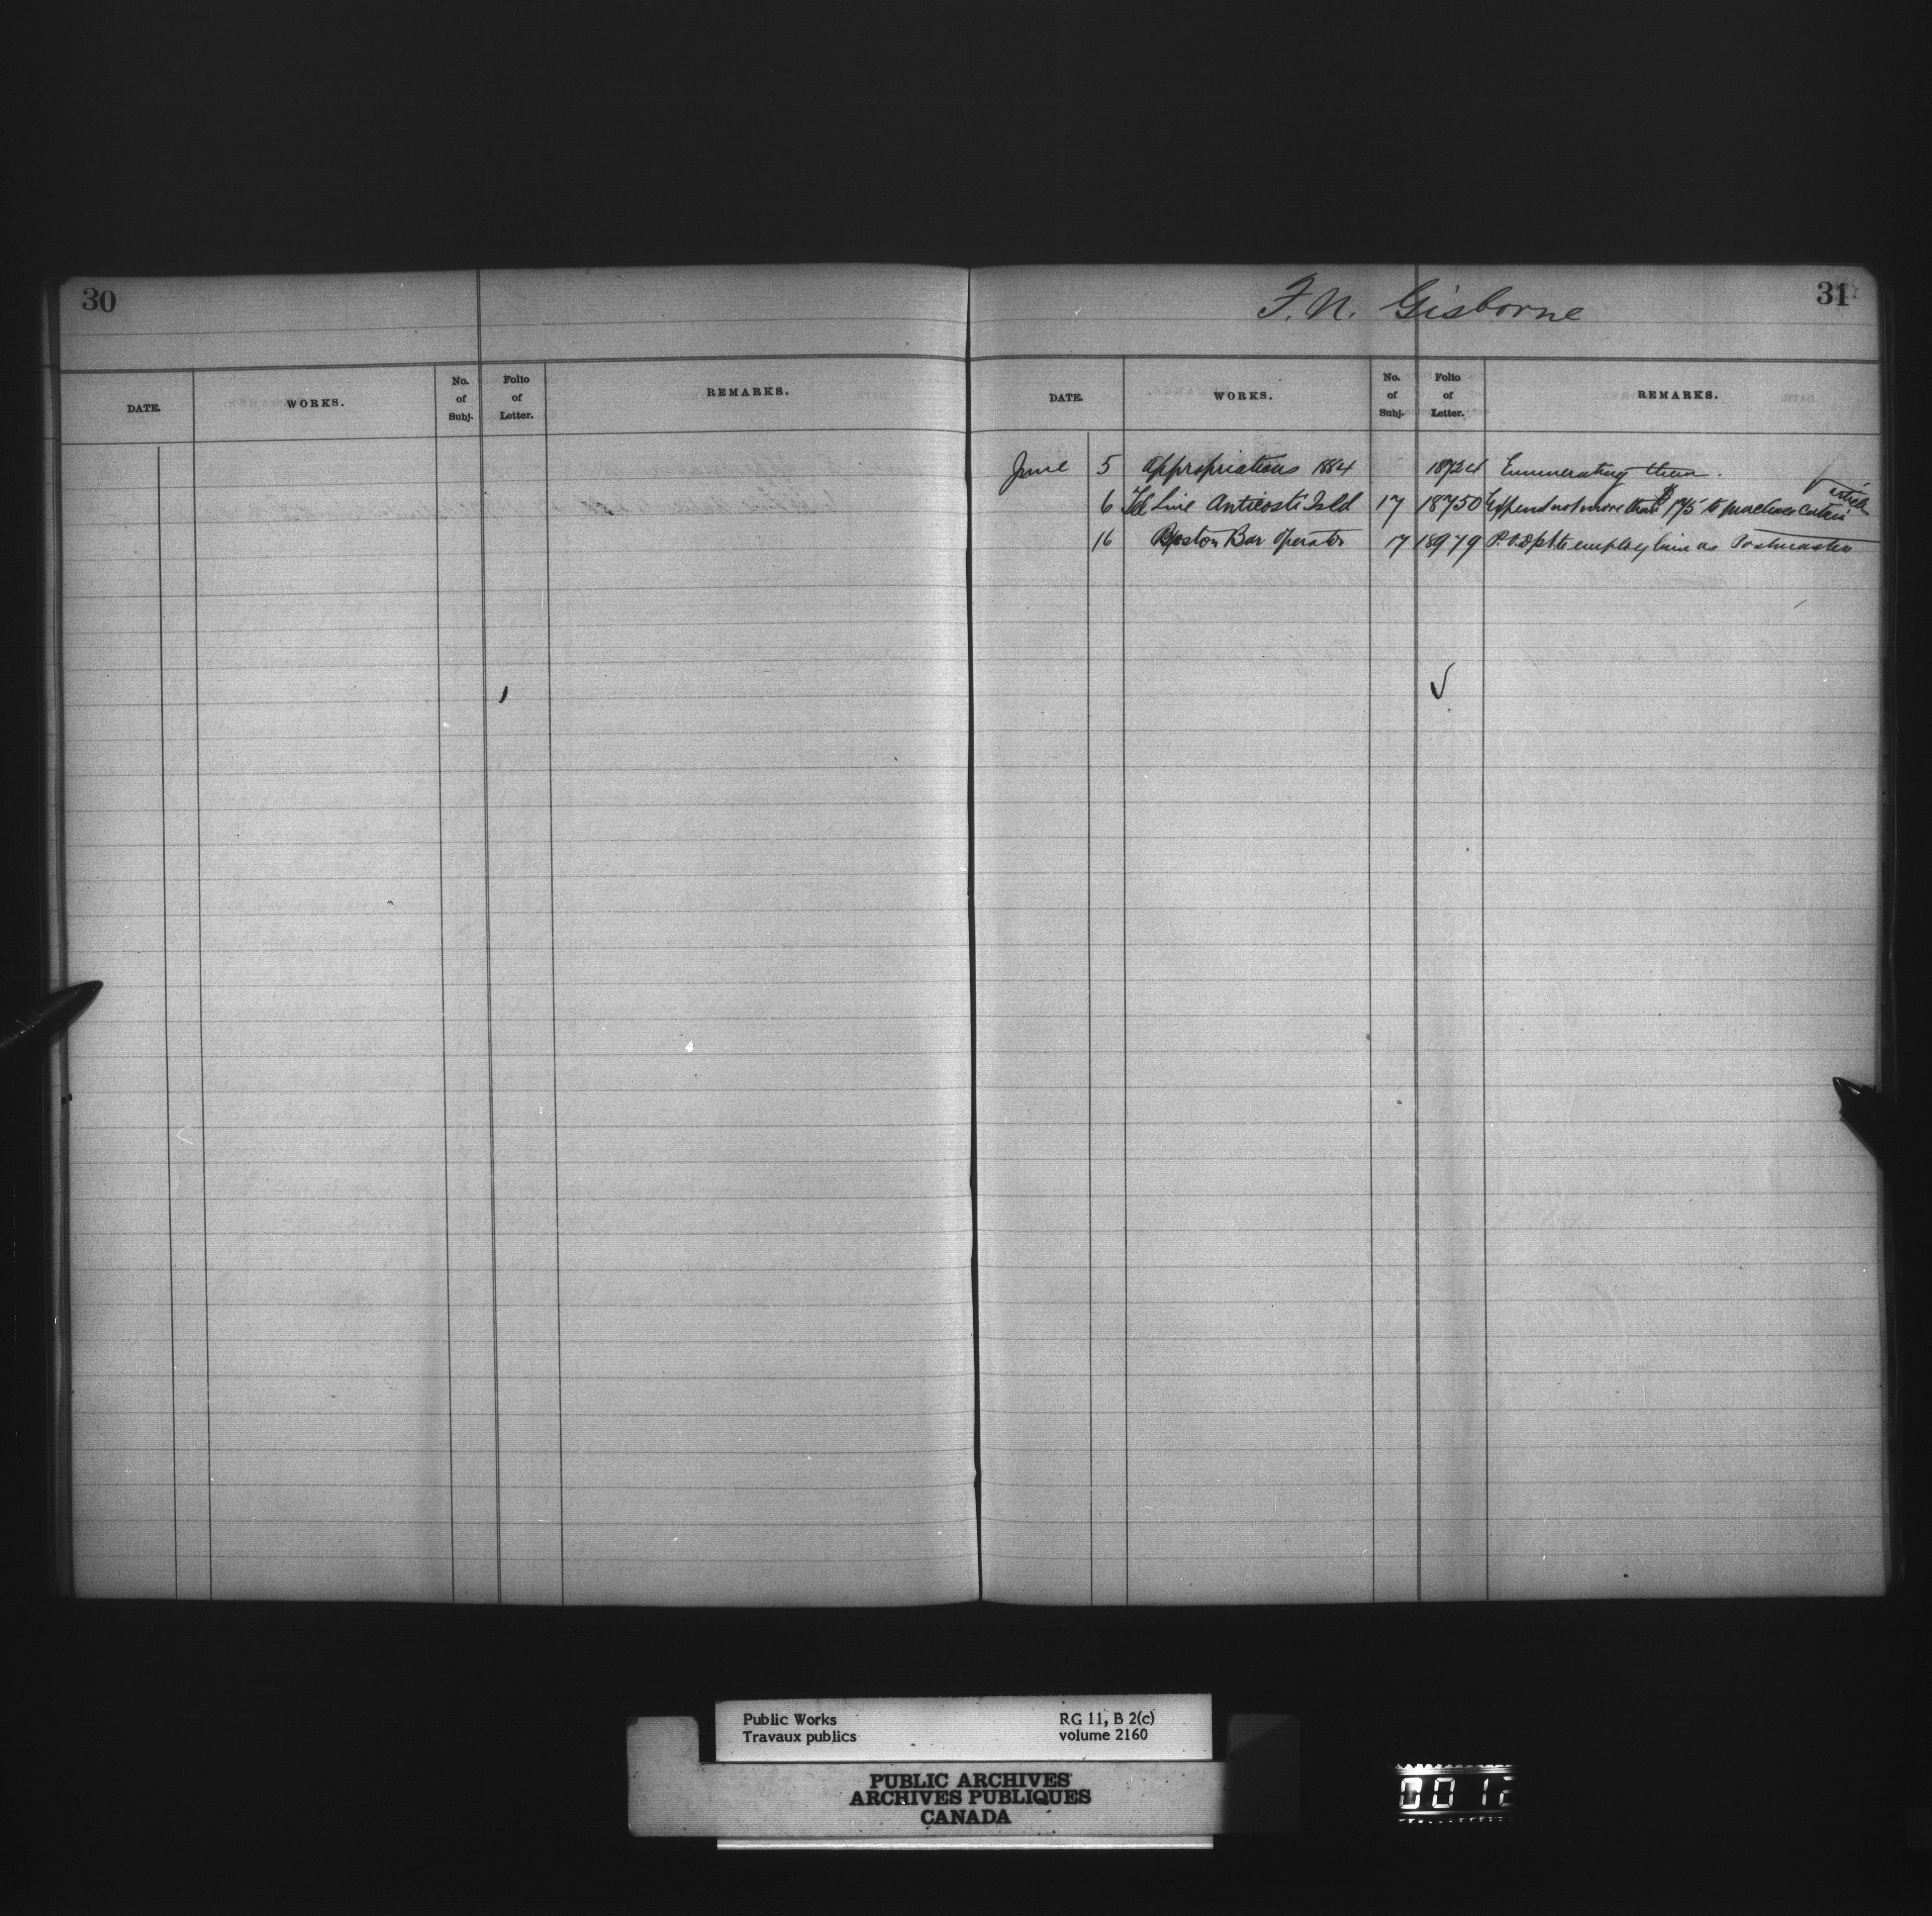 30
DATE. WORKS. No. of Subj. Folio of Letter. REMARKS.
F. N. Gisborne 31
DATE. WORKS. No. of Subj. Folio of Letter. REMARKS.
June 5 Appropriations 1884 18724 Enumerating them.
6 Tel Line Anticosti Isld 17 18750 Expend not more than $175 to purchase certain article
16 Boston Bar Operator 17 18979 P.O. Dpt to employ him as Postmaster
Public Works RG 11, B 2(c)
Travaux publics volume 2160
PUBLIC ARCHIVES
ARCHIVES PUBLIQUES
CANADA
0012